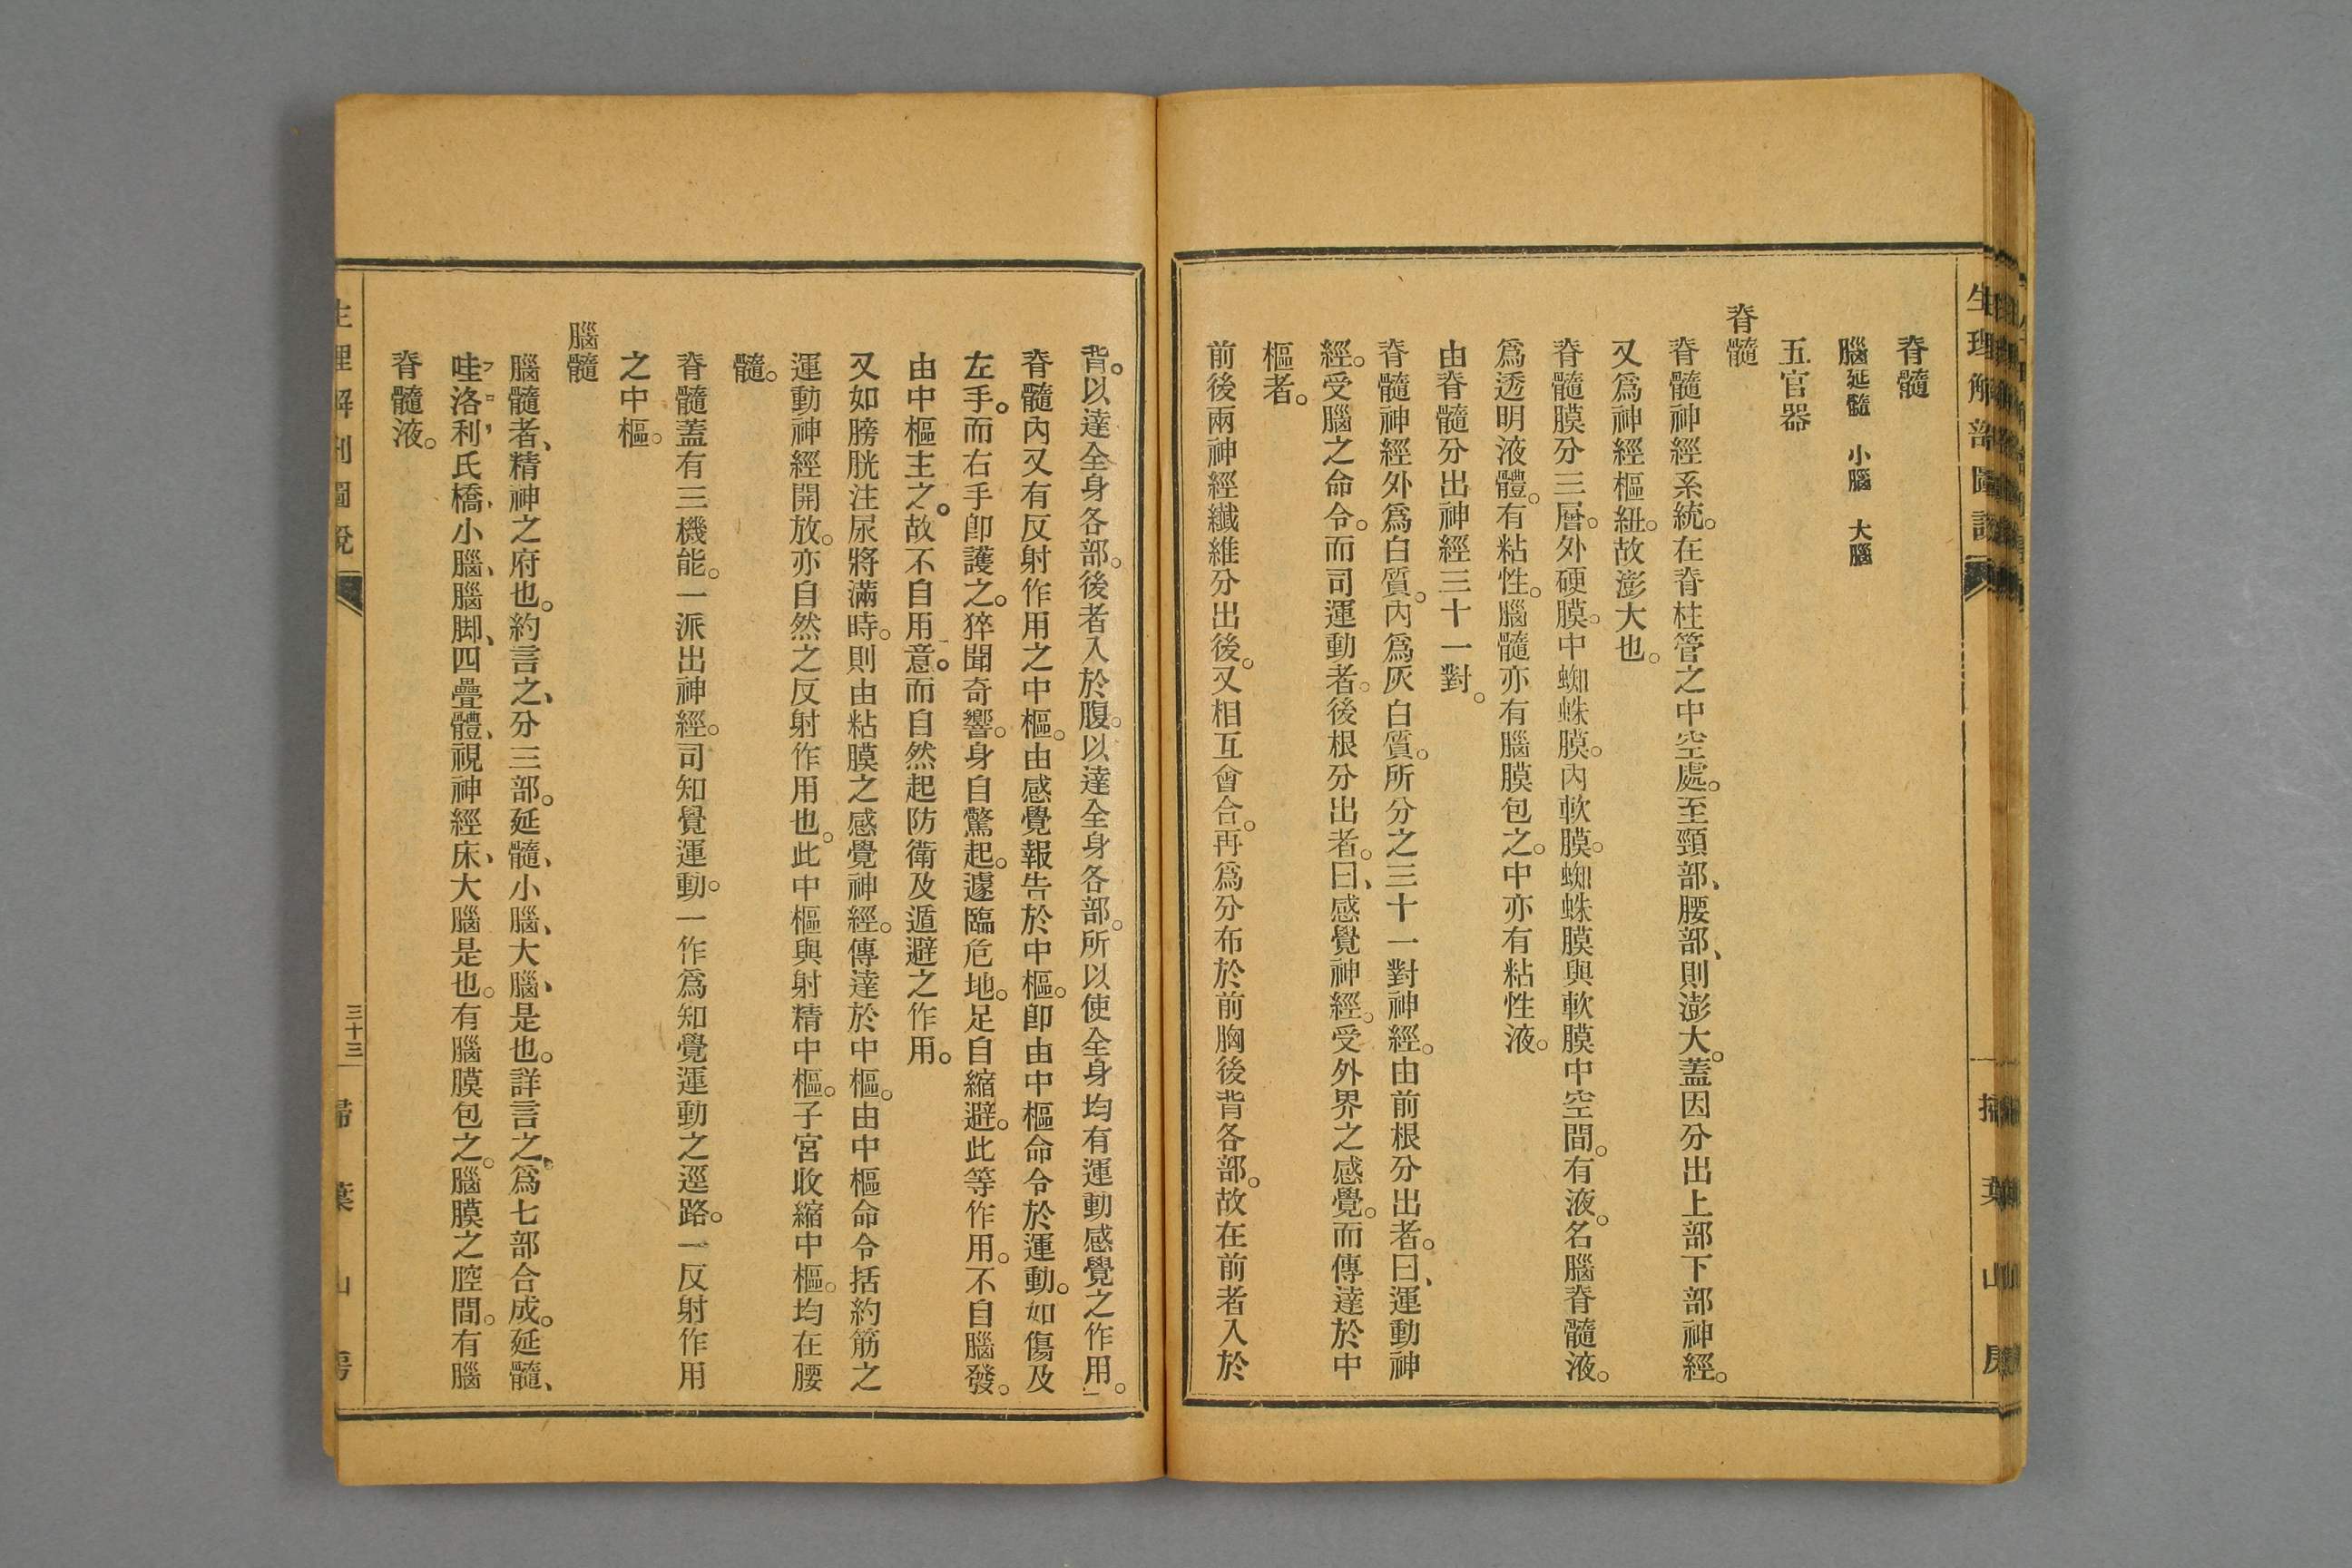 生理解剖圖說
掃葉山房
脊髓
腦 延髓 小腦 大腦
五官器
脊髓
脊髓神經系統。在脊柱管之中空處。至頸部、腰部、則澎大。蓋因分出上部下部神經。
又爲神經樞紐。故澎大也。
脊髓膜分三層。外硬膜。中蜘蛛膜。內軟膜。蜘蛛膜與軟膜中空間。有液。名腦脊髓液。
爲透明液體。有粘性。腦髓亦有腦膜包之。中亦有粘性液。
由脊髓分出神經三十一對。
脊髓神經外爲白質。內爲灰白質。所分之三十一對神經。由前根分出者。曰、運動神
經。受腦之命令。而司運動者。後根分出者。曰、感覺神經。受外界之感覺。而傳達於中
樞者。
前後兩神經纖維分出後。又相互會合。再爲分布於前胸後背各部。故在前者入於
背。以達全身各部。後者入於腹。以達全身各部。所以使全身均有運動感覺之作用。
脊髓內又有反射作用之中樞。由感覺報告於中樞。卽由中樞命令於運動。如傷及
左手。而右手卽護之。猝聞奇響。身自驚起。遽臨危地。足自縮避。此等作用。不自腦發。
由中樞主之。故不自用意。而自然起防衛及遁避之作用。
又如膀胱注尿將滿時。則由粘膜之感覺神經。傳達於中樞。由中樞命令括約筋之
運動神經開放。亦自然之反射作用也。此中樞與射精中樞。子宮收縮中樞。均在腰
髓。
脊髓蓋有三機能。一派出神經。司知覺運動。一作爲知覺運動之逕路。一反射作用
之中樞。
腦髓
腦髓者、精神之府也。約言之、分三部。延髓、小腦、大腦、是也。詳言之、爲七部合成。延髓、
哇洛利氏橋、小腦、腦脚、四疊體、視神經床、大腦是也。有腦膜包之。腦膜之腔間。有腦
脊髓液。
生理解剖圖說
三十三
掃葉山房